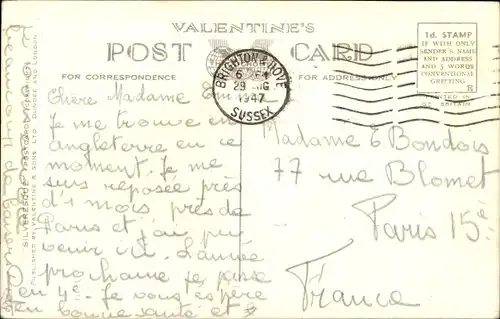 VALENTINE'S
POST CARD
FOR CORRESPONDENCE
FOR ADDRESS ONLY
BRIGHTON & HOVE
6 PM
29 AUG
1947
SUSSEX
1d. STAMP
IF WITH ONLY
SENDER'S NAME
AND ADDRESS
AND 5 WORDS
CONVENTIONAL
GREETING
PRINTED IN
GT BRITAIN
Chère Madame
Je me trouve en
angleterre en ce
moment. Je me
suis reposée près
d'1 mois près de
Paris et j'ai pu
venir ici. L'année
prochaine je passe
en 4e. Je vous espère
en bonne santé et
beaucoup de
Madame E Bondois
77 rue Blomet
Paris 15e
France
PUBLISHED BY VALENTINE & SONS LTD. DUNDEE AND LONDON